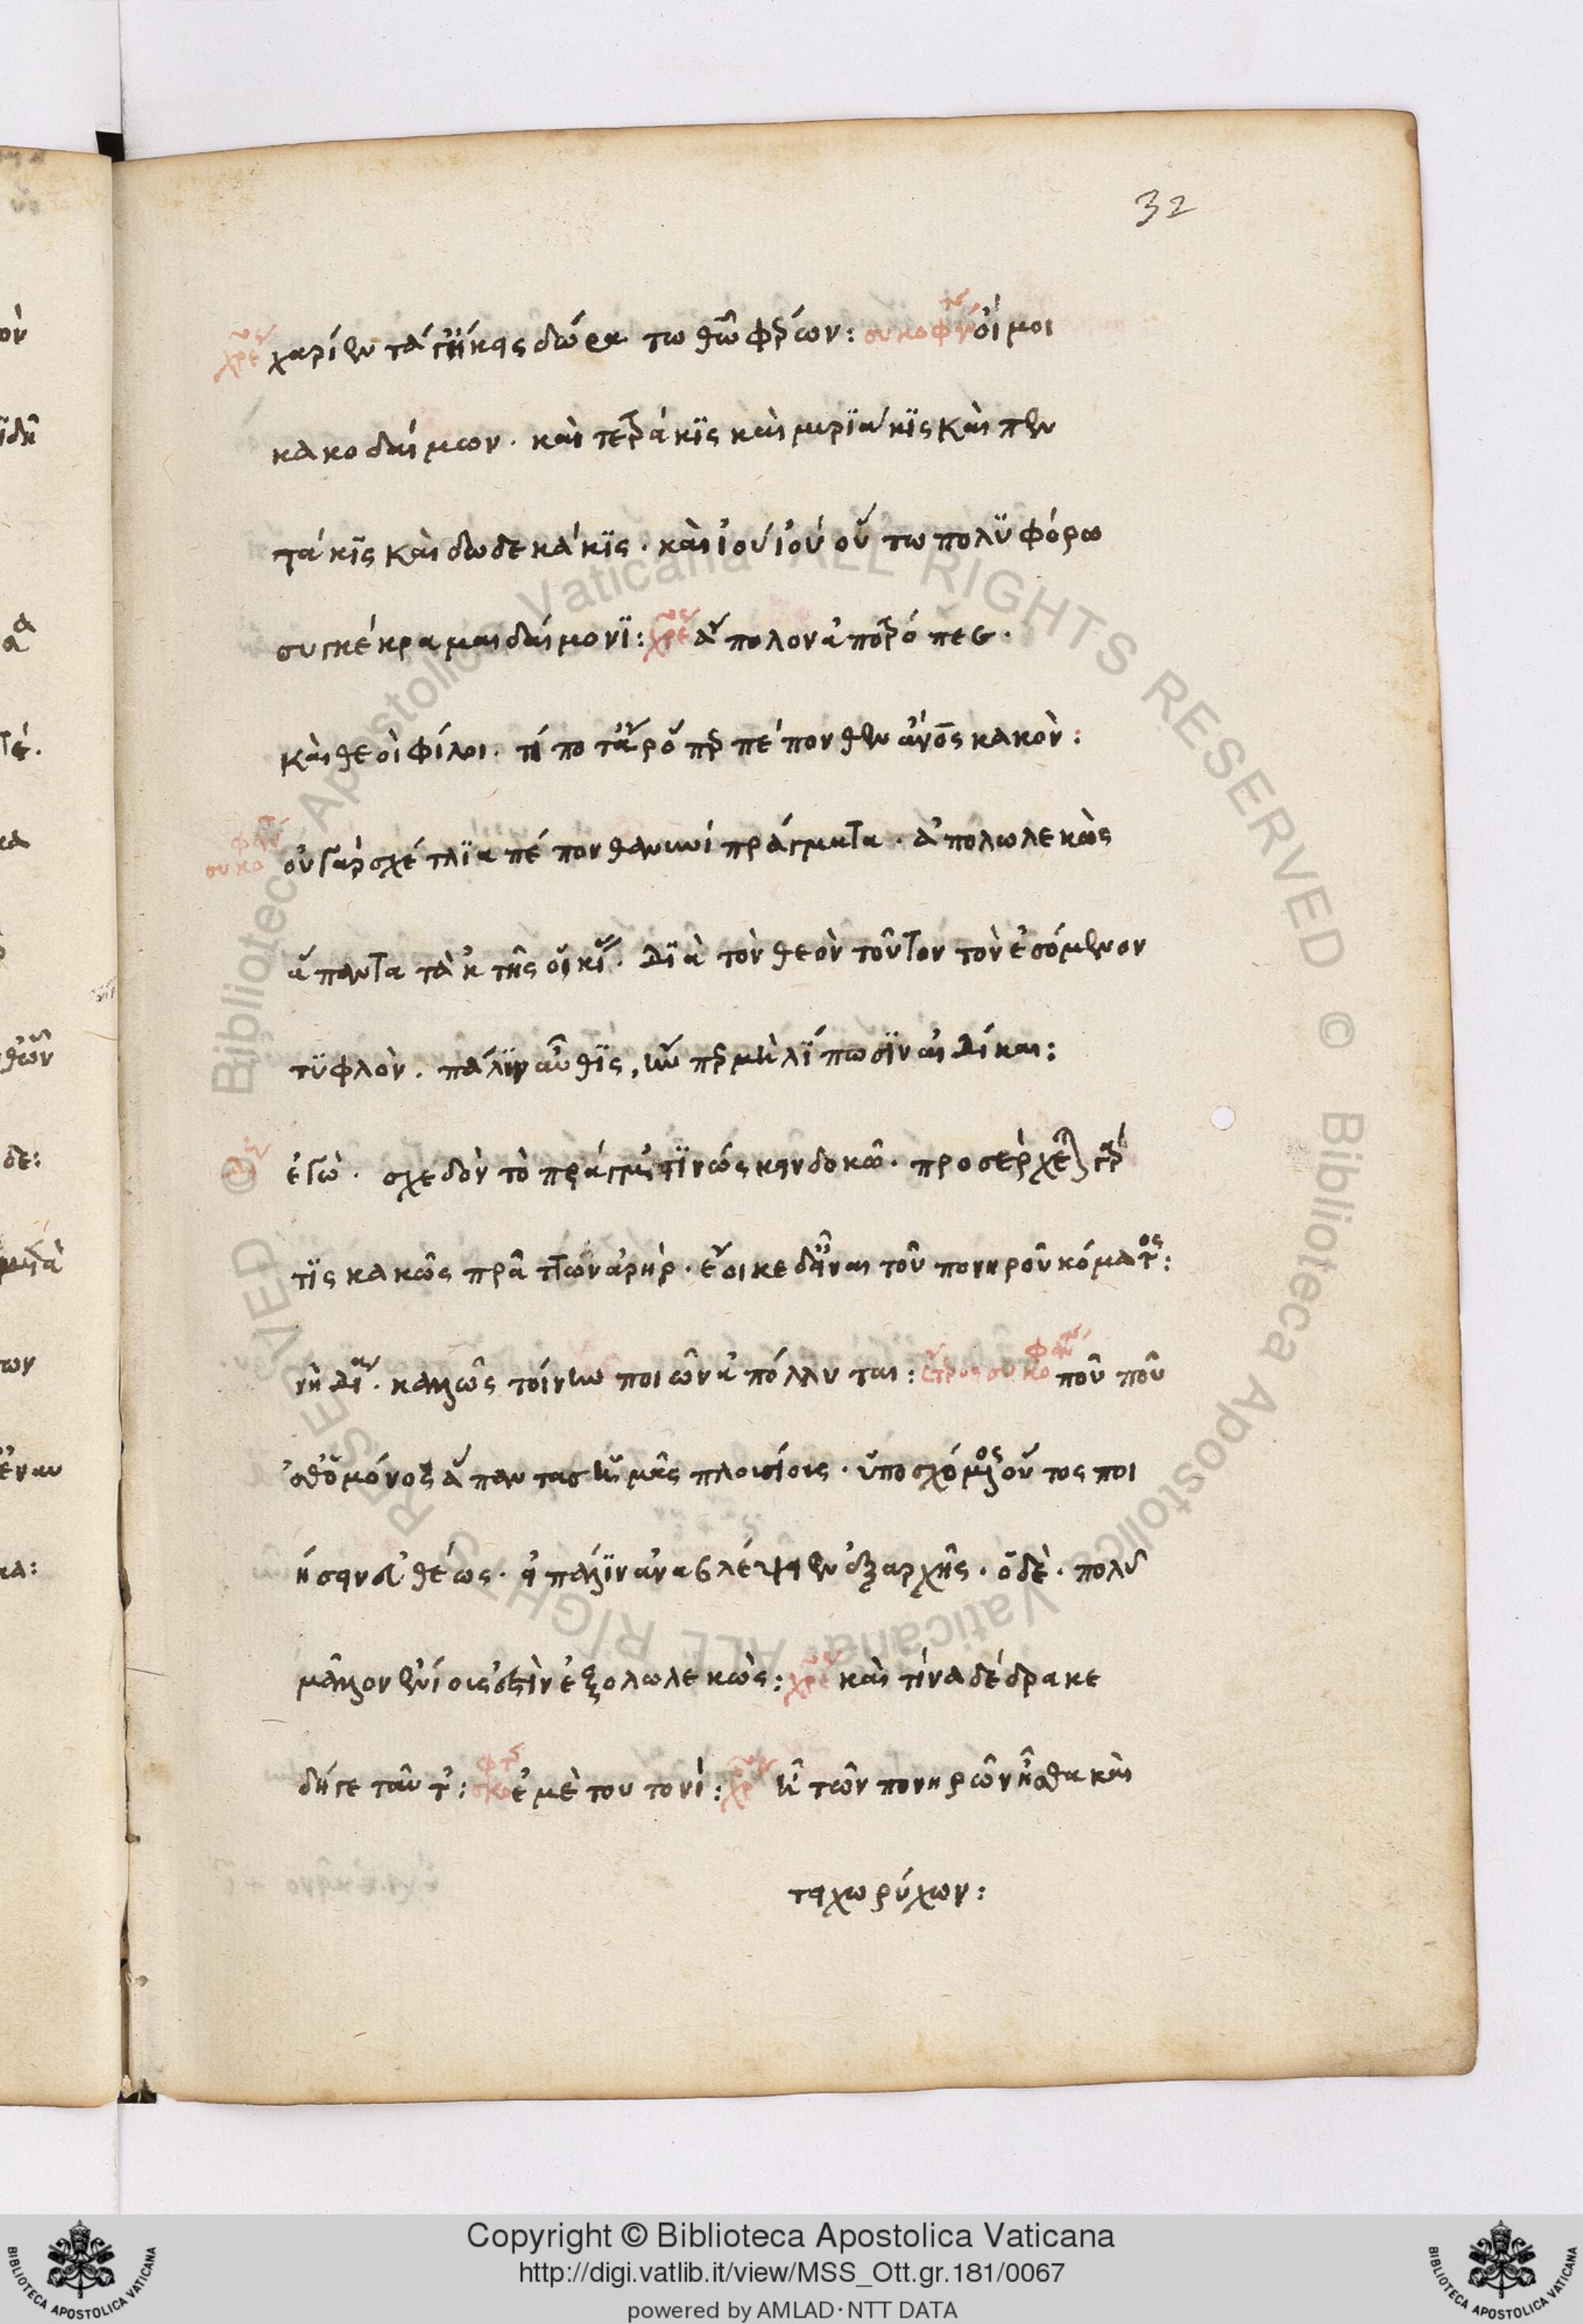 32
χαρίεντά γ' ἥκεις δῶρα τῷ θεῷ φέρων: οἴμοι
κακοδαίμων. καὶ τετράκις καὶ μυριάκις καὶ πεν
τάκις καὶ δωδεκάκις. καὶ ἰοὺ ἰοὺ οὕτω πολυφόρω
συγκέκραμαι δαίμονι: ἄπολον ἀποτρόπαιε.
καὶ θεοὶ φίλοι. τί ποτ' ἄρ' ὅπερ πέπονθεν ἄνος κακὸν:
οὐ γὰρ σχέτλια πέπονθα νυνὶ πράγματα. ἀπολωλεκὼς
ἅπαντα τἀκ τῆς οἰκίας. διὰ τὸν θεὸν τοῦτον τὸν ἐσόμενον
τυφλὸν. πάλιν αὖθις, ἤνπερ μὴ λίπωσιν αἱ δίκαι:
ἐγὼ. σχεδὸν τὸ πρᾶγμα γινώσκειν δοκῶ. προσέρχεται γάρ
τις κακῶς πράττων ἀνὴρ. ἔοικε δ' εἶναι τοῦ πονηροῦ κόματος:
νὴ δία. καλῶς τοίνυν ποιῶν ἀπόλλυται: ποῦ ποῦ
'σθ' ὁ μόνος ἅπαντας ἡμᾶς πλουσίους. ὑποσχόμενος οὗτος ποι
ήσειν εὐθέως. εἰ πάλιν ἀναβλέψειεν ἐξαρχῆς. ὁ δὲ. πολὺ
μᾶλλον ἐνίους ἐστὶν ἐξολωλεκὼς: καὶ τίνα δέδρακε
δήγε ταῦτ': ἐμὲ τουτονί: ἦ τῶν πονηρῶν ἦσθα καὶ
τειχωρύχων:
Copyright © Biblioteca Apostolica Vaticana
http://digi.vatlib.it/view/MSS_Ott.gr.181/0067
powered by AMLAD · NTT DATA